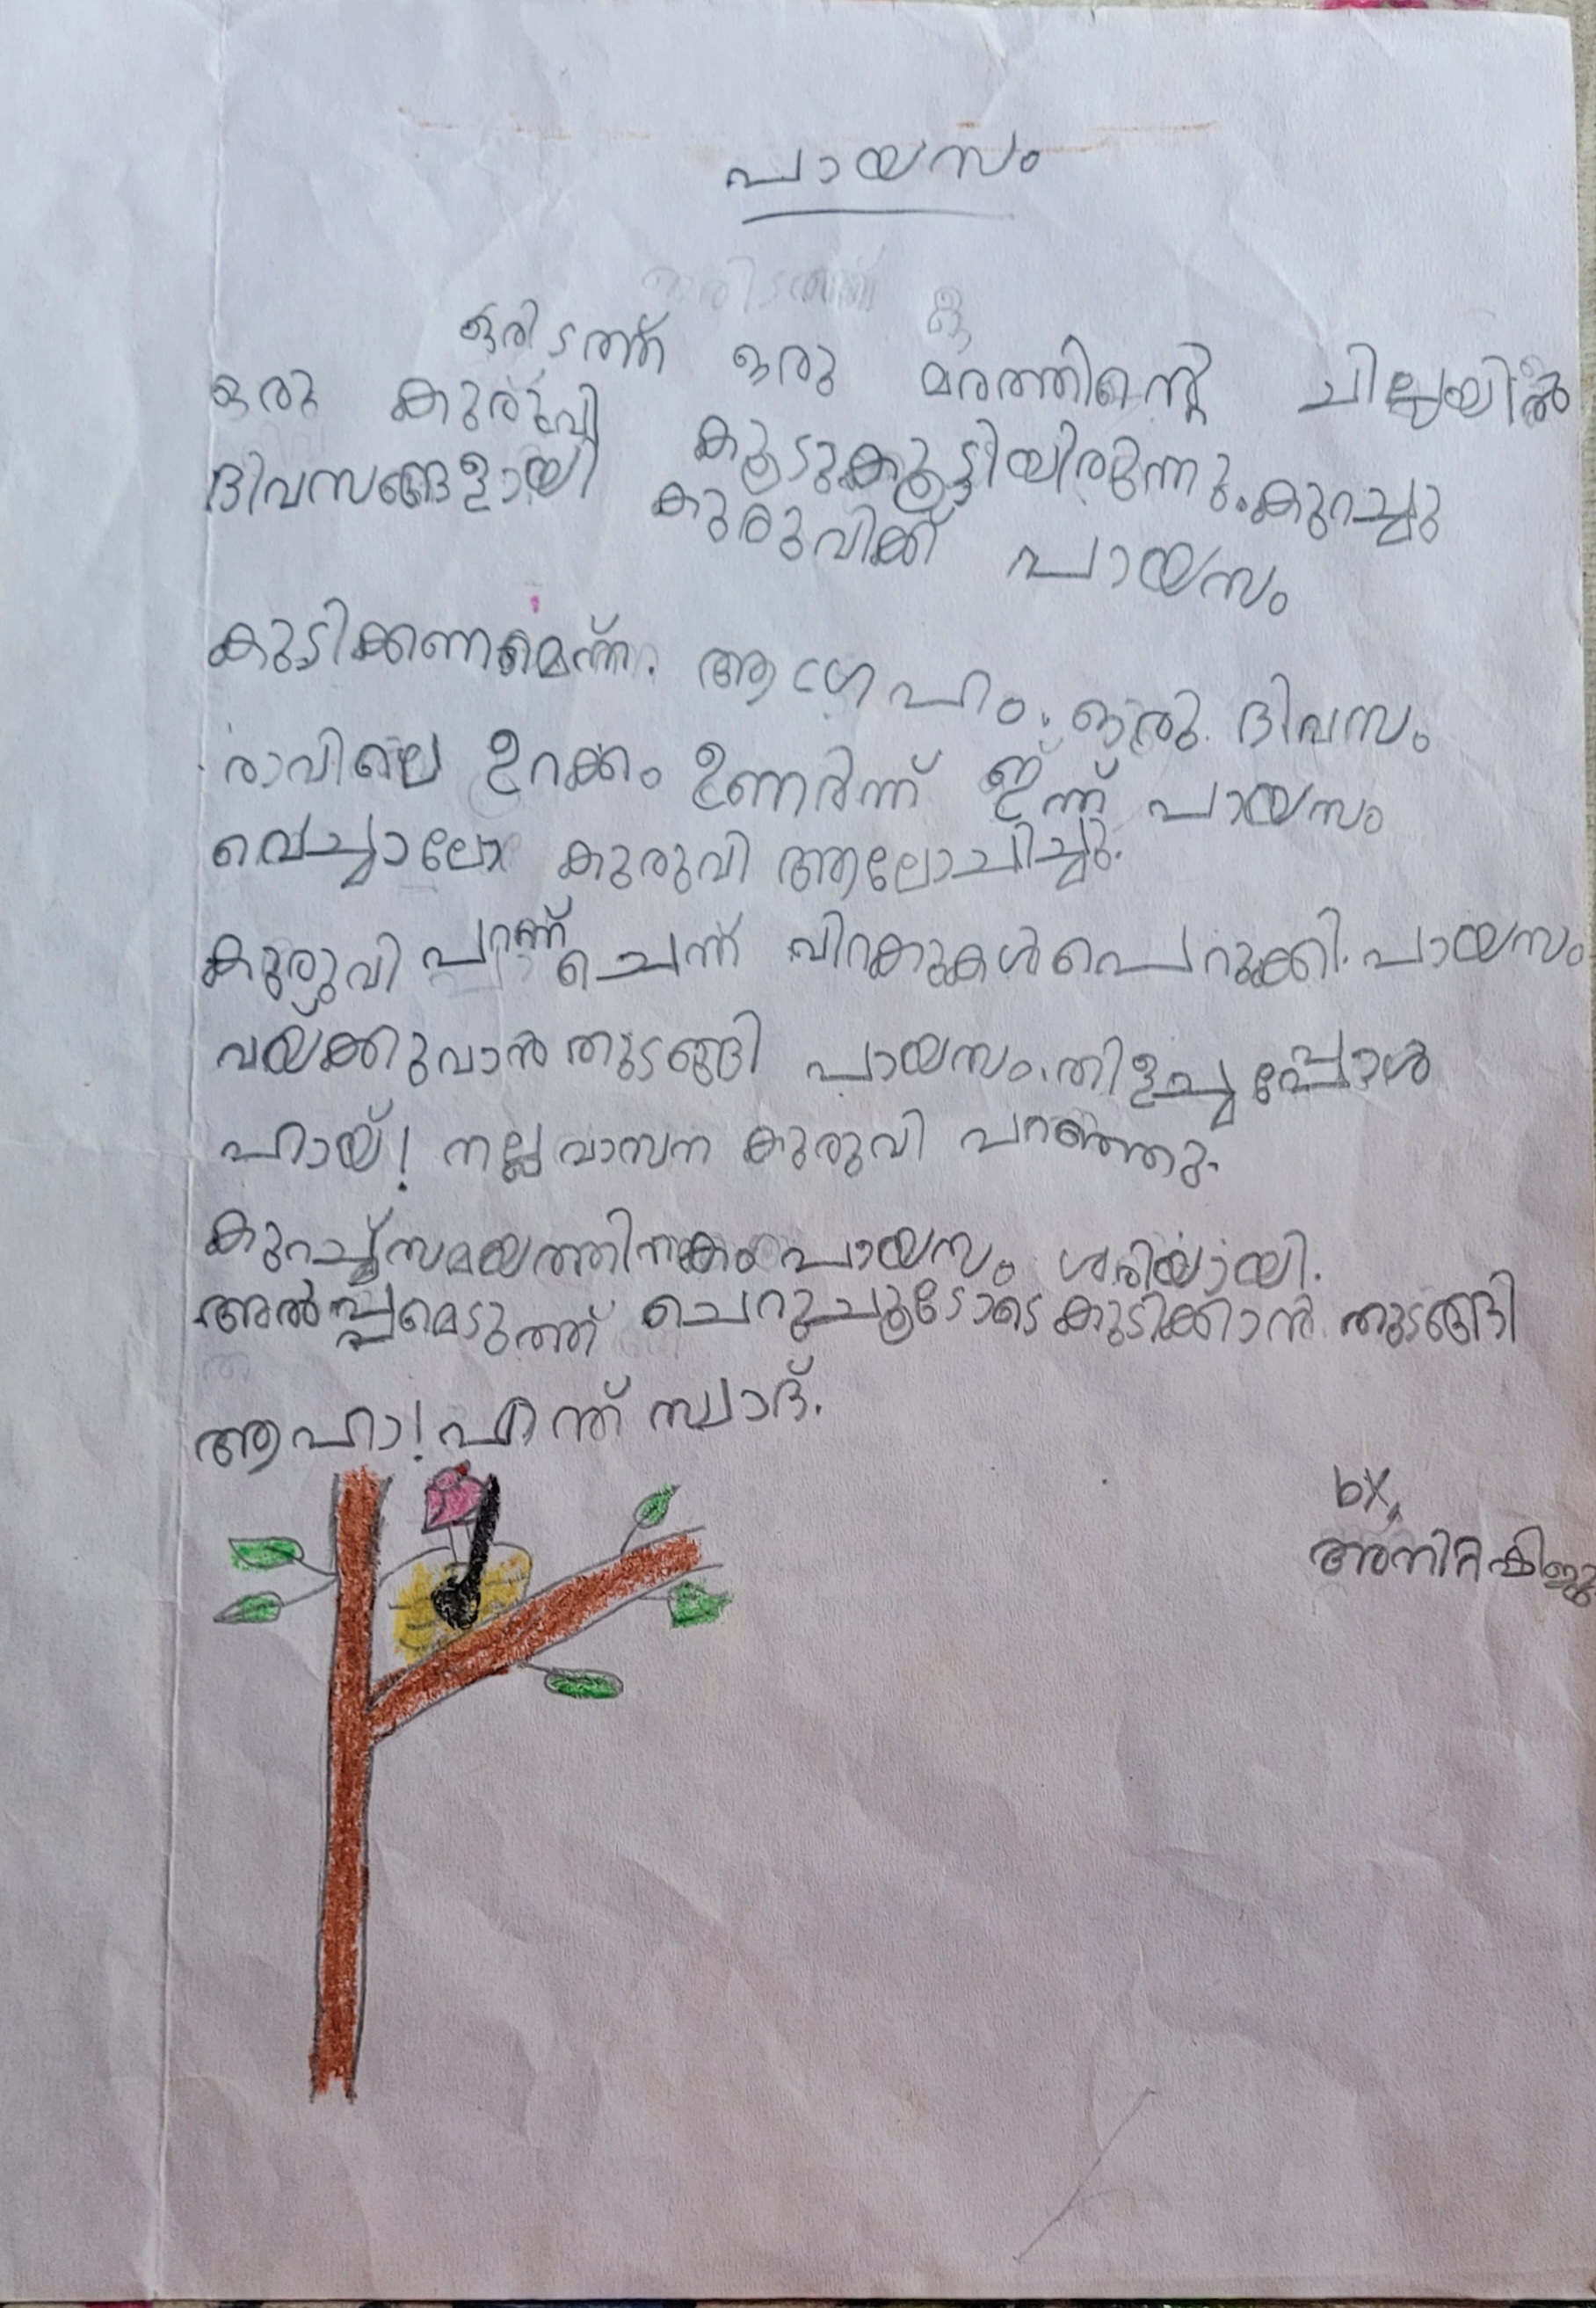 പായസം
ഒരിടത്ത് ഒരു മരത്തിന്റെ ചില്ലയിൽ
ഒരു കുരുവി കൂടുകൂട്ടിയിരുന്നു. കുറച്ചു
ദിവസങ്ങളായി കുരുവിക്ക് പായസം
കുടിക്കണമെന്ന്. ആഗ്രഹം. ഒരു ദിവസം
രാവിലെ ഉറക്കം ഉണർന്ന് ഇന്ന് പായസം
വെച്ചാലോ കുരുവി ആലോചിച്ചു.
കുരുവി പറന്ന് ചെന്ന് വിറകുകൾ പെറുക്കി. പായസം
വയ്ക്കുവാൻ തുടങ്ങി പായസം. തിളച്ചപ്പോൾ
ഹായ്! നല്ല വാസന കുരുവി പറഞ്ഞു.
കുറച്ച് സമയത്തിനകം പായസം ശരിയായി.
അൽപ്പമെടുത്ത് ചെറുചൂടോടെ കുടിക്കാൻ തുടങ്ങി
ആഹാ! എന്ത് സ്വാദ്.
by,
അനിറ്റ ഷിജു